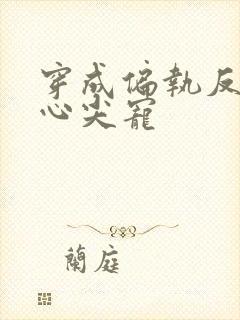 穿成偏執反
心尖寵
蘭庭